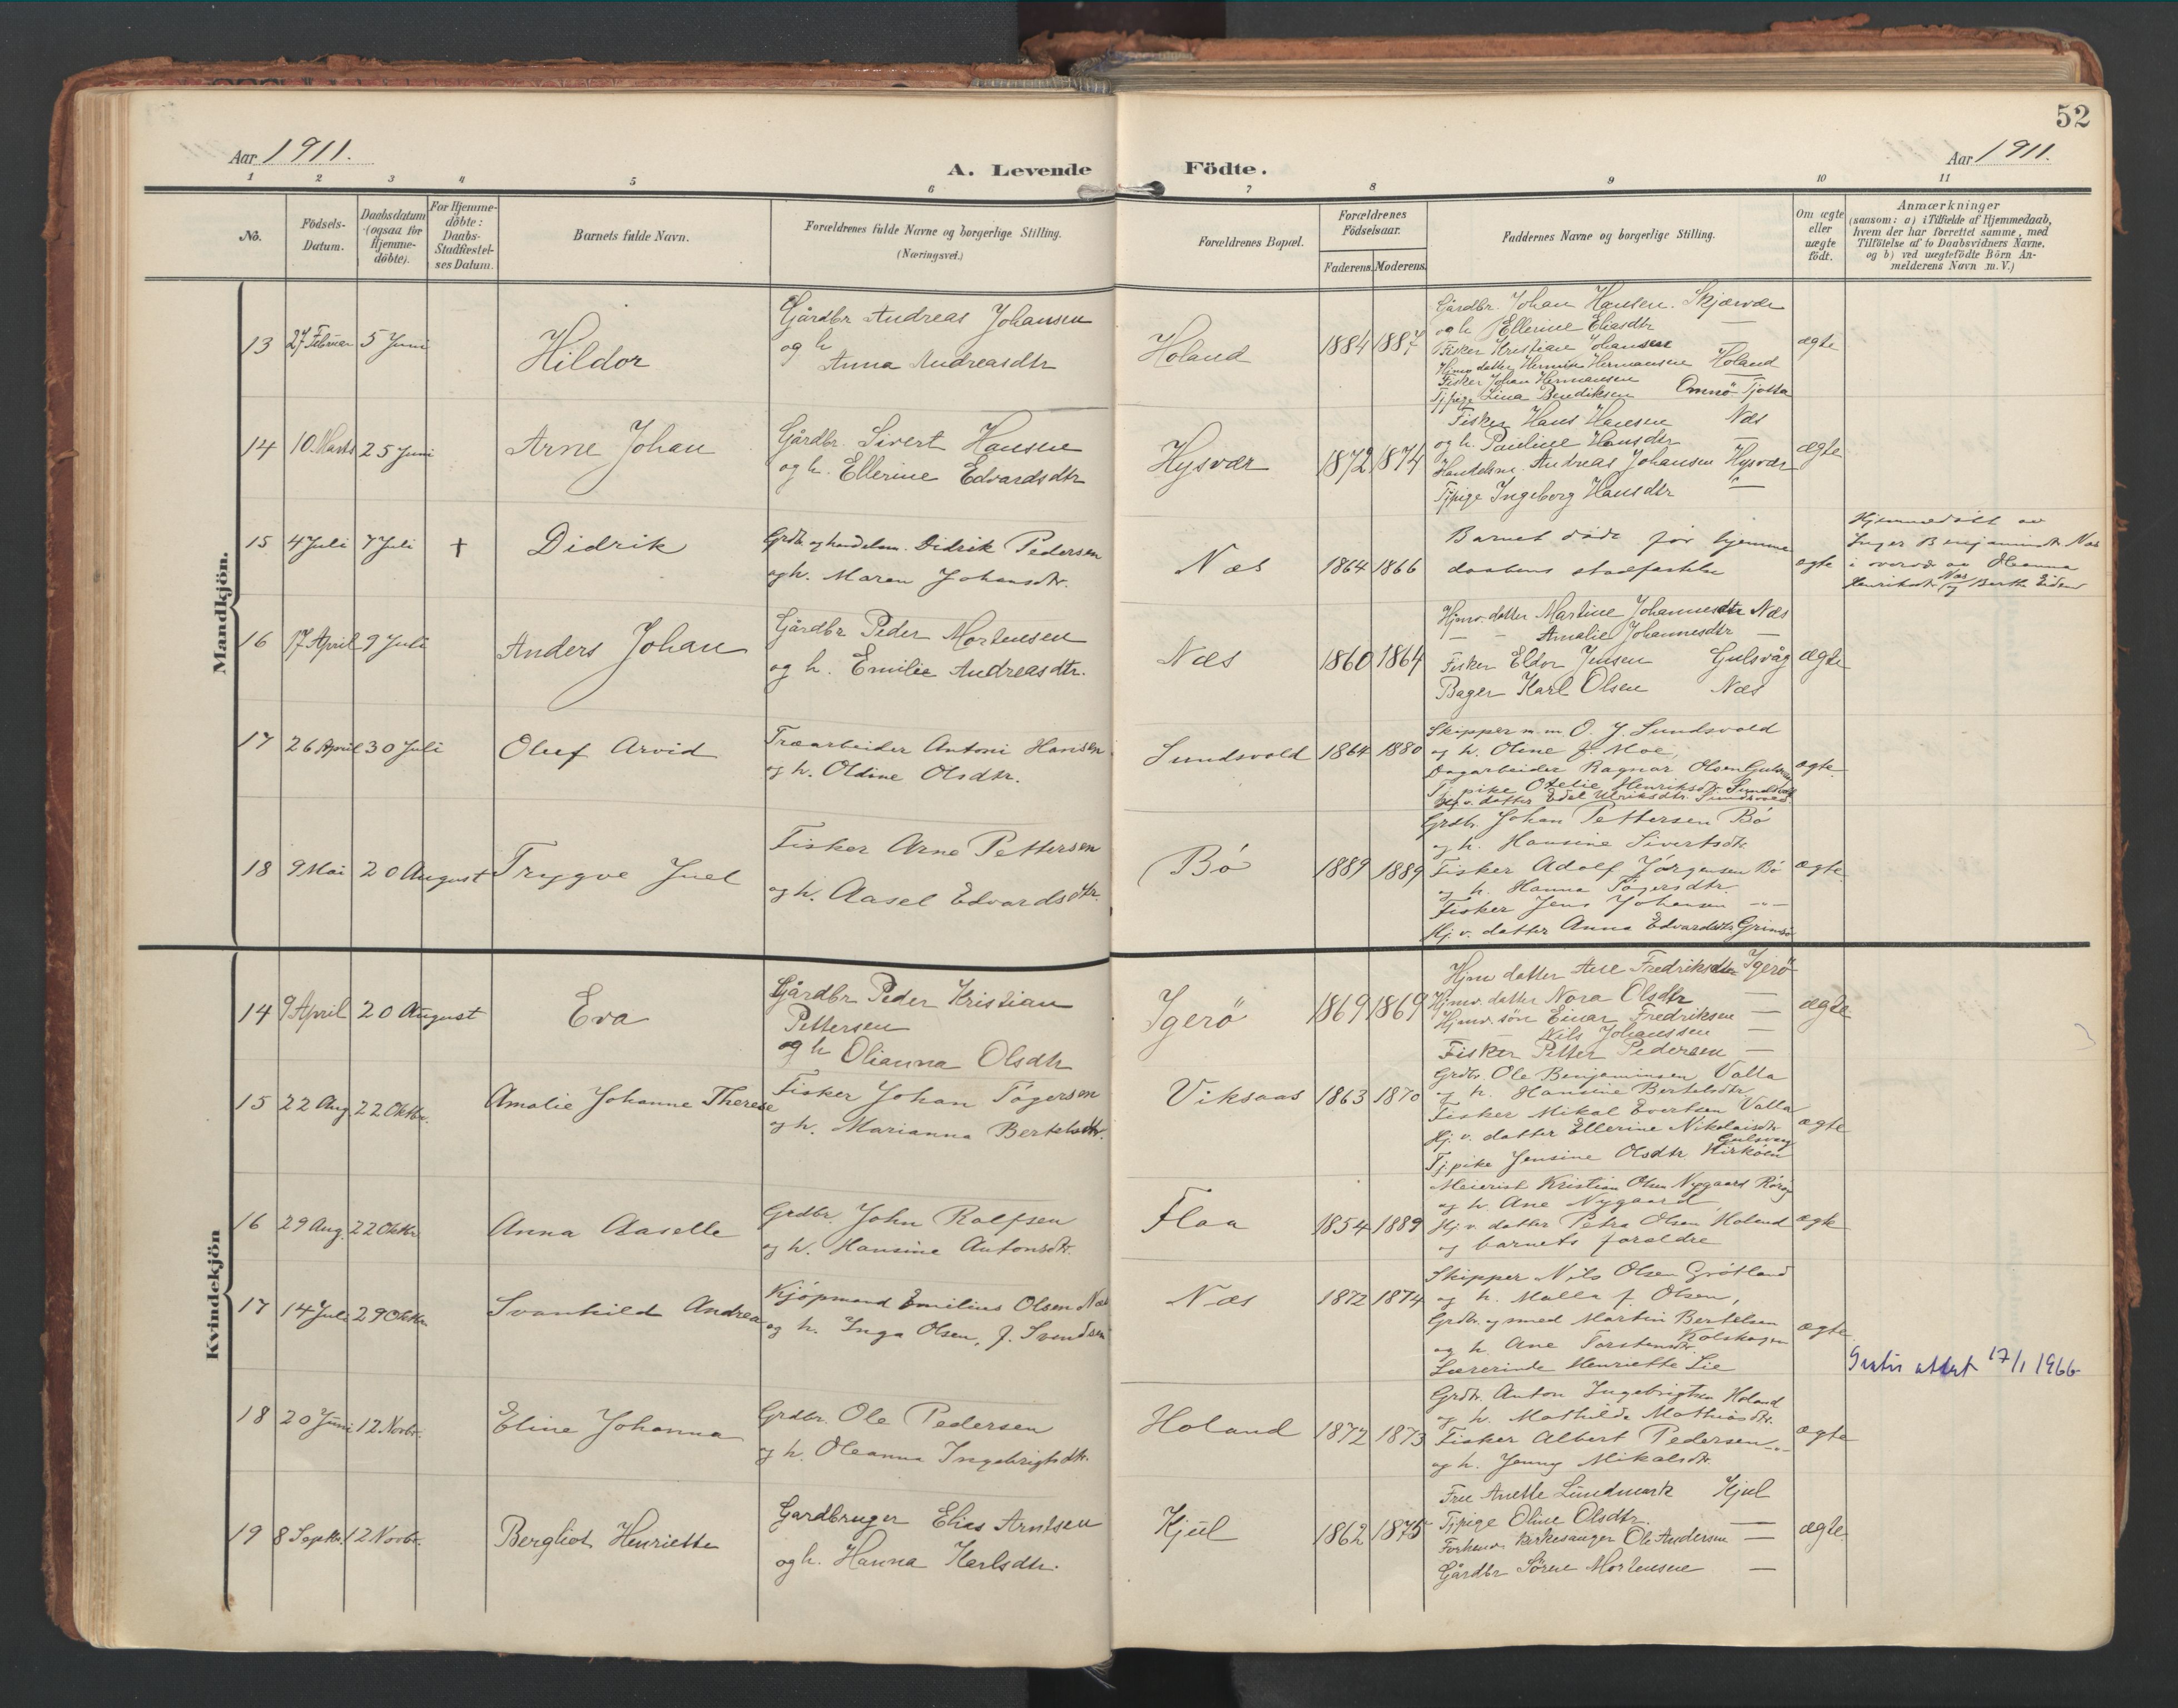 52
Aar 1911.
A. Levende Födte.
Aar 1911.
1 2 3 4 5 6 7 8 9 10 11
No.
Födsels-
Datum.
Daabsdatum
(ogsaa for
Hjemme-
döbte).
For Hjemme-
döbte:
Daabs-
Stadfæstel-
ses Datum.
Barnets fulde Navn.
Forældrenes fulde Navne og borgerlige Stilling.
(Næringsvei.)
Forældrenes Bopæl.
Forældrenes
Födselsaar.
Faderens. Moderens.
Faddernes Navne og borgerlige Stilling.
Om ægte
eller
uægte
födt.
Anmærkninger
(saasom: a) i Tilfælde af Hjemmedaab,
hvem der har forrettet samme, med
Tilföielse af to Daabsvidners Navne.
og b) ved uægtefödte Börn An-
melderens Navn m. V.)
Mandkjön.
13 27 Februar 5 Juni Hildor
Gårdbr Andreas Johansen
og h
Anna Andreasdtr
Holand 1884 1887
Gårdbr Johan Hansen. Skjærvær
og h Ellerine Eliasdtr —
Fisker Kristian Johansen
Hjmv datter Hermine Hermansen Holand
Fisker Johan Hermansen —
Tjpige Lina Bendiksen Omnö Tjotta
ægte
14 10. Marts 25 Juni Arne Johan
Gårdbr. Sivert Hansen
og h. Ellerine Edvardsdtr
Hysvær 1872 1874
Fisker Hans Hansen Næs
og h. Pauline Hansdtr —
Handelsm. Andreas Johansen Hysvær
Tjpige Ingeborg Hansdtr —
ægte
15 4 Juli 7 Juli † Didrik
Grdb. og handelsm. Didrik Pedersen
og h. Maren Johansdtr.
Næs 1864 1866
Barnet döde för hjemme
daabens stadfæstelse
ægte
Hjemmedöbt av
Inger Benjaminsdt. Næs
i overvær av Oleanna
Henriksdtr. Næs og Berthe Eidem
16 17 April 9 Juli Anders Johan
Gårdbr Peder Mortensen
og h. Emilie Andreasdtr.
Næs 1860 1864
Hjmv. datter Martine Johannesdtr Næs
— - Amalie Johannesdtr —
Fisker Eldor Jensen Gulsvåg
Bager Karl Olsen Næs
ægte
17 26 April 30 Juli Oluf Arvid
Træarbeider Antoni Hansen
og h. Oldine Olsdtr.
Sundsvold 1864 1880
Skipper m.m. O. J. Sundsvold
og h. Oline f. Moe,
Dagarbeider Ragnar Olsen Gulsvag
Tj. pike Otelie Henriksdtr Sundsvold
Hj. v. datter Edel Ulriksdtr. Sundsvold
ægte.
18 9 Mai 20 August Trygve Juel
Fisker Arne Pettersen
og h. Aasel Edvardsdtr.
Bö 1889 1889
Grdbr. Johan Pettersen Bö
og h. Hansine Sivertsdtr
Fisker Adolf Jörgensen Bö
og h. Hanna Tögersdtr.
Fisker Jens Johansen -"-
Hj. v. datter Anna Edvardsdtr Grimsö
ægte.
Kvindekjön
14 9 April 20 August Eva
Gårdbr Peder Kristian
Pettersen
og h Olianna Olsdtr
Igerö 1869 1869
Hjmv datter Ane Fredriksdtr Igerö
Hjmv. datter Nora Olsdtr —
Hjmv. sön Einar Fredriksen —
Nils Johanssen —
Fisker Petter Pedersen —
ægte.
15 22 Aug. 22 Oktbr. Amalie Johanne Therese
Fisker Johan Tögersen
og h. Marianna Bertelsdtr.
Viksaas 1863 1870
Grdbr. Ole Benjaminsen Valla
og h. Hansine Bertelsdtr.
Fisker Mikal Evertsen Valla
Hj. v. datter Ellerine Nikolaisdtr
Gulsvag
Tj. pike Jensine Olsdtr Kirköen
ægte
16 29 Aug. 22 Oktbr Anna Aaselle
Grdbr. John Rolfsen
og h. Hansine Antonsdtr.
Flaa 1854 1889
Meierist Kristian Olsen Nygaard
og h. Ane Nygaard
Hj. v. datter Petra Olsen Holand
og barnets foreldre
ægte
17 14 Juli 29 Oktbr Svanhild Andrea
Kjöpmand Emilius Olsen Næs
og h. Inga Olsen, f. Svendsen
Næs 1872 1874
Skipper Nils Olsen Grötland
og h. Malla f. Olsen,
Grdbr. og smed Martin Bertelsen
og h. Ane Torstensdtr. Kolshagen
Lærerinde Henriette Lie
ægte
Gratis attest 17/1 1966
18 20 Juni 12 Novbr. Eline Johanna
Grdbr. Ole Pedersen
og h. Oleanna Ingebrigtsdtr.
Holand 1872 1873
Grdbr. Anton Ingebrigtsen Holand
og h. Mathilde Mathiasdtr.
Fisker Albert Pedersen -"-
og h. Jenny Mikalsdtr.
ægte
19 8 Septbr. 12 Novbr. Bergliot Henriette
Gardbruger Elias Arntsen
og h. Hanna Karlsdtr.
Kjul 1862 1875
Fru Anette Lundmark Kjul
Tjpige Oline Olsdtr. —
Forhenv. Kirkesanger Ole Andersen —
Gårdbr Sören Mortensen —
ægte